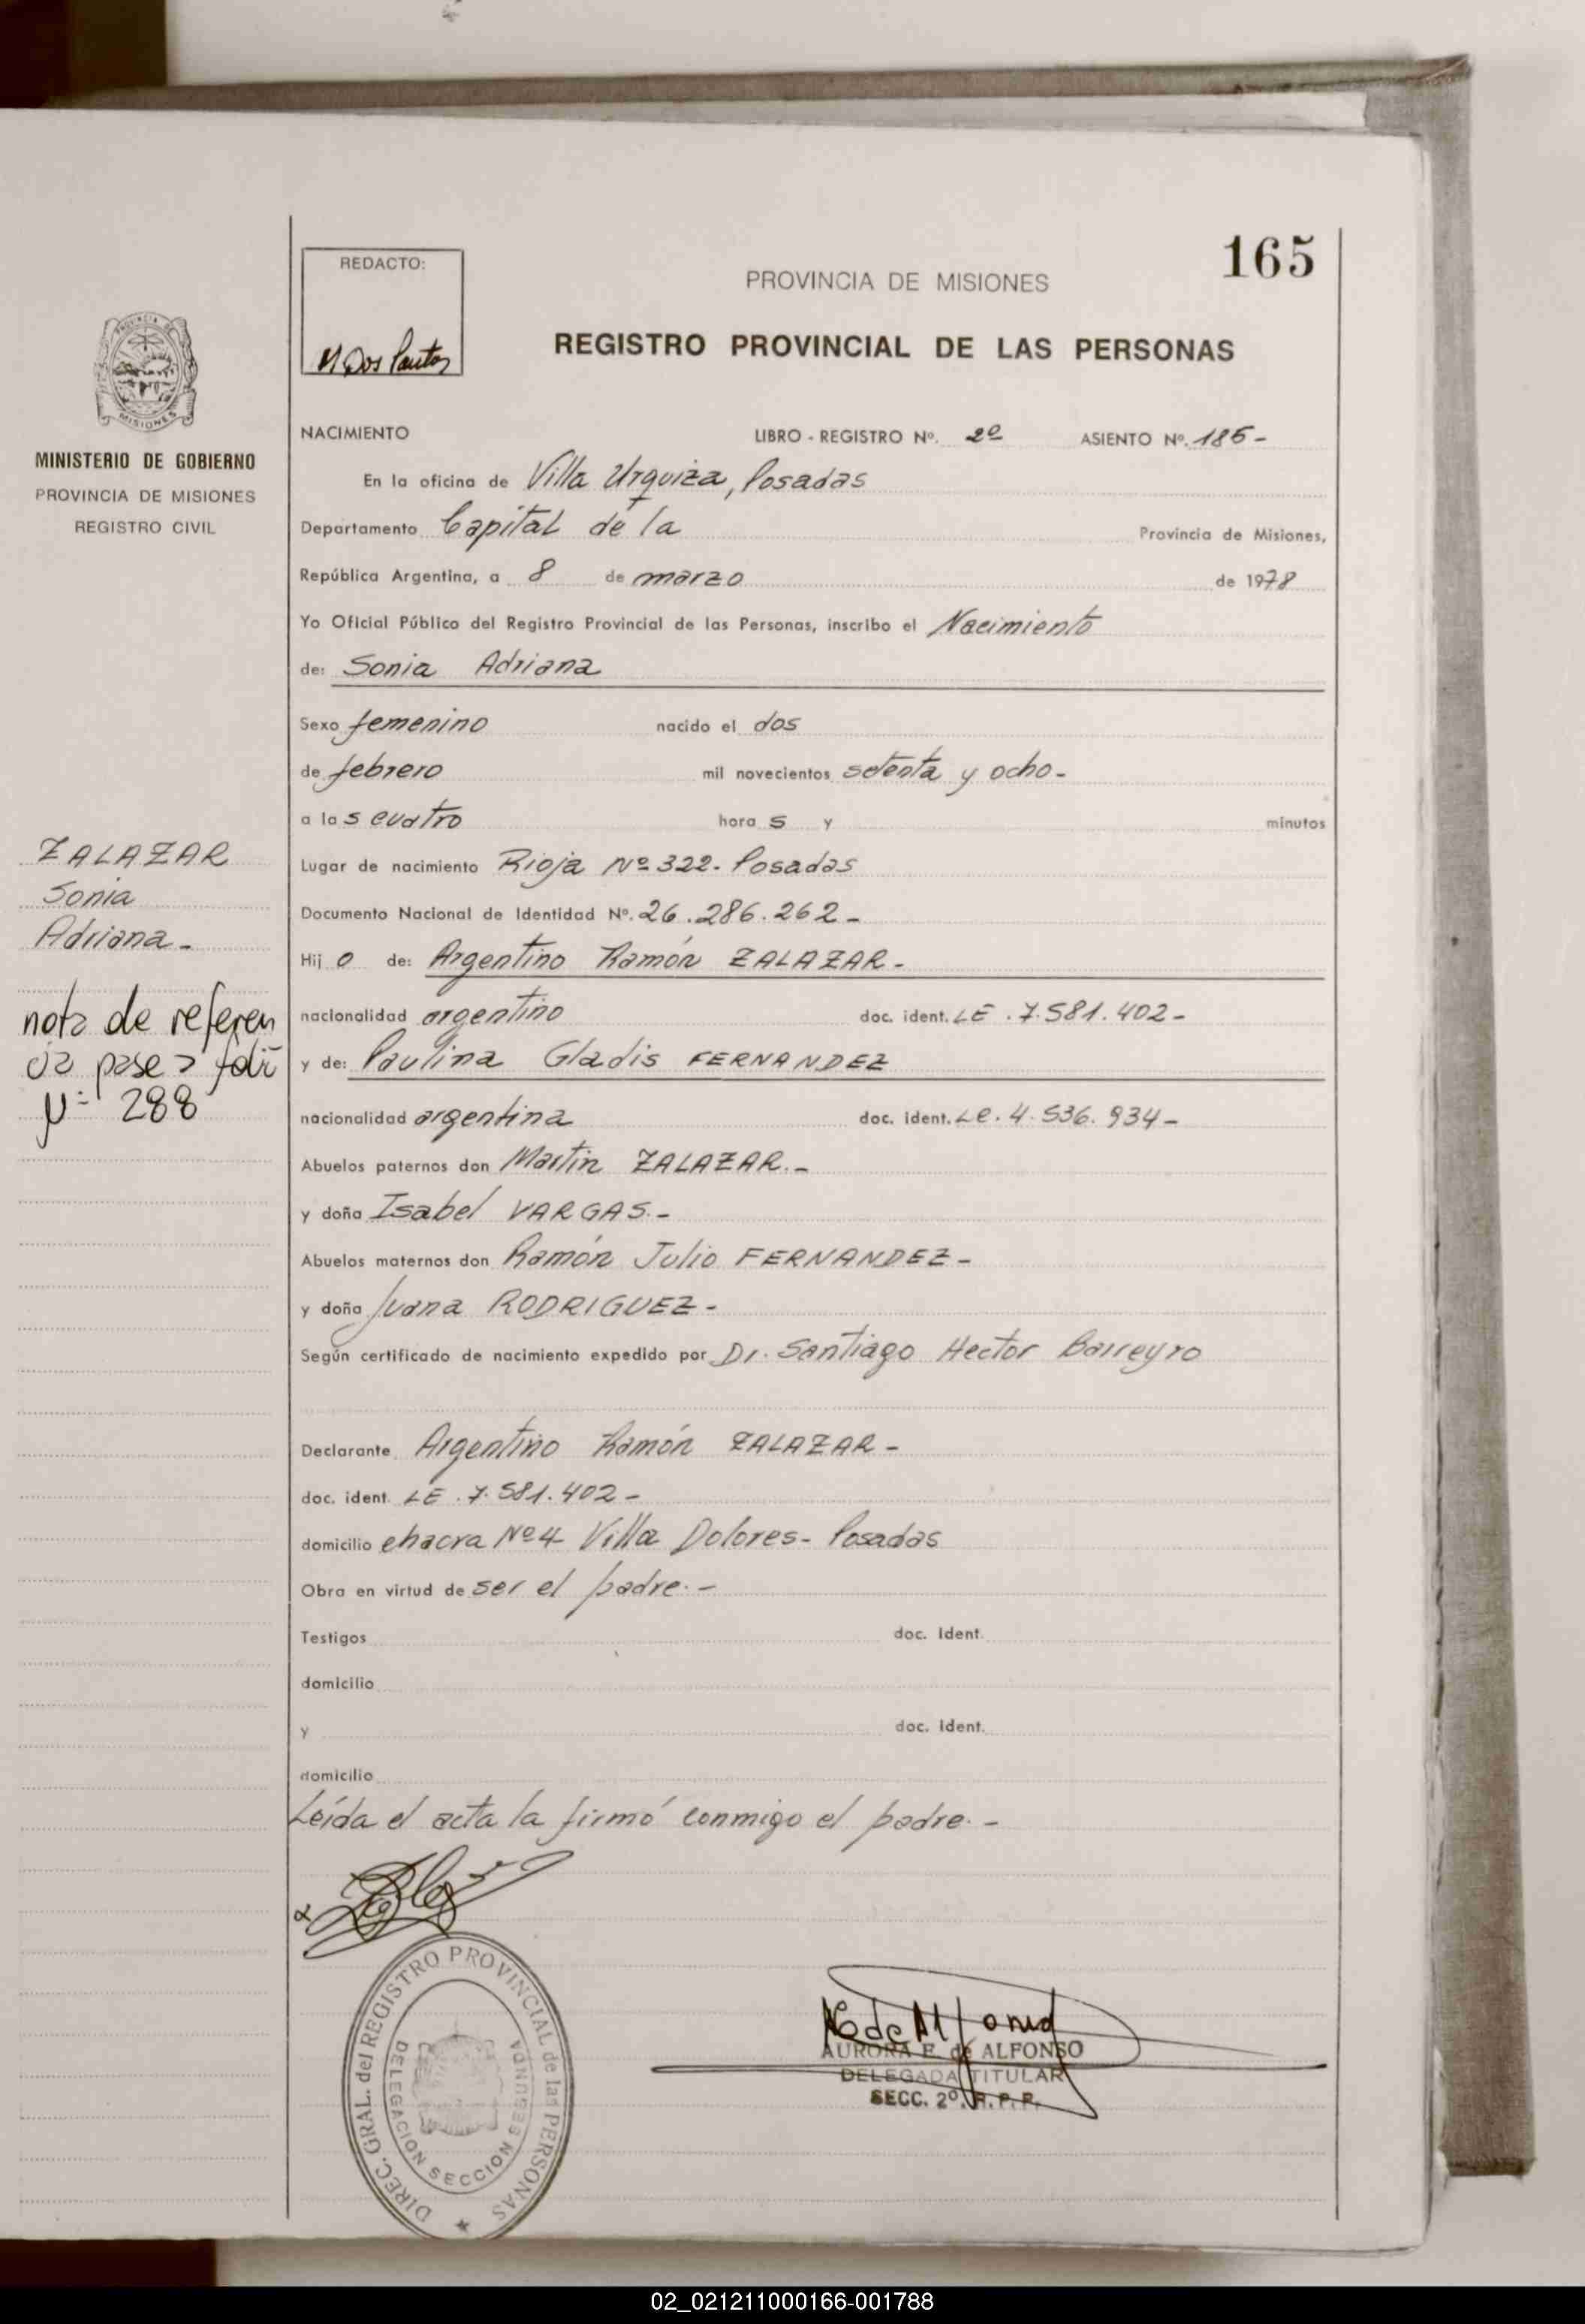 165
REDACTO:
M Dos Santos
PROVINCIA DE MISIONES
REGISTRO PROVINCIAL DE LAS PERSONAS
MISIONES
MINISTERIO DE GOBIERNO
PROVINCIA DE MISIONES
REGISTRO CIVIL
ZALAZAR
Sonia
Adriana -
nota de referen
cia pase a folio
Nº 288
NACIMIENTO LIBRO - REGISTRO Nº. 2º ASIENTO Nº. 185 -
En la oficina de Villa Urquiza, Posadas
Departamento Capital de la Provincia de Misiones,
República Argentina, a 8 de marzo de 1978
Yo Oficial Público del Registro Provincial de las Personas, inscribo el Nacimiento
de: Sonia Adriana
Sexo femenino nacido el dos
de febrero mil novecientos setenta y ocho -
a las cuatro horas y minutos
Lugar de nacimiento Rioja Nº 322 - Posadas
Documento Nacional de Identidad Nº. 26.286.262 -
Hijo de: Argentino Ramón ZALAZAR -
nacionalidad argentino doc. ident. LE . 7.581.402 -
y de: Paulina Gladis FERNANDEZ
nacionalidad argentina doc. ident. LC. 4.536.934 -
Abuelos paternos don Martin ZALAZAR. -
y doña Isabel VARGAS. -
Abuelos maternos don Ramón Julio FERNANDEZ -
y doña Juana RODRIGUEZ -
Según certificado de nacimiento expedido por Dr. Santiago Hector Barreyro
Declarante Argentino Ramón ZALAZAR -
doc. ident. LE . 7.581.402 -
domicilio chacra Nº 4 Villa Dolores - Posadas
Obra en virtud de ser el padre. -
Testigos doc. ident.
domicilio
y doc. ident.
domicilio
Leída el acta la firmó conmigo el padre. -
DIREC. GRAL. del REGISTRO PROVINCIAL de las PERSONAS
DELEGACION SECCION SEGUNDA
AURORA E. de ALFONSO
DELEGADA TITULAR
SECC. 2º. R. P. P.
02_021211000166-001788